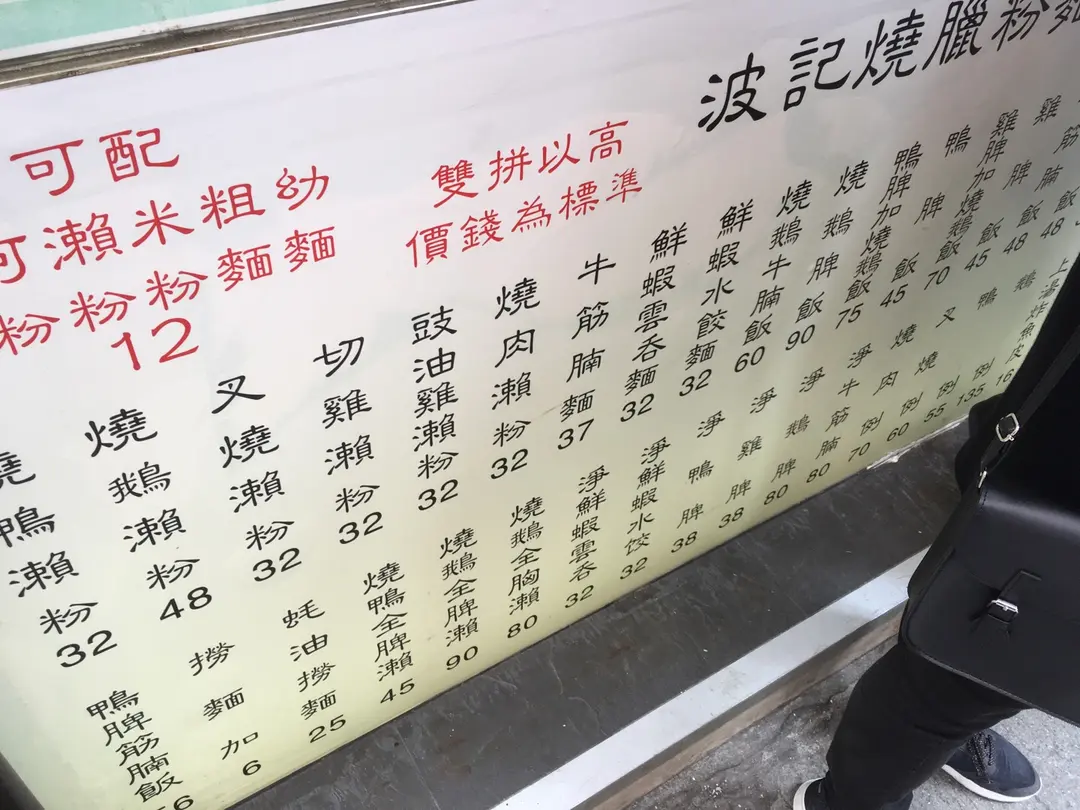 波記燒臘粉麵
可配
河瀨米粗幼
粉粉粉麵麵
12
雙拼以高
價錢為標準
燒鴨瀨粉 32
燒鵝瀨粉 48
叉燒瀨粉 32
切雞瀨粉 32
豉油雞瀨粉 32
燒肉瀨粉 32
牛筋腩麵 37
鮮蝦雲吞麵 32
鮮蝦水餃麵 32
燒鵝牛腩飯 60
燒鵝脾飯 90
鴨脾加燒鵝飯 75
鴨脾飯 45
雞脾加燒鵝飯 70
雞脾飯 45
筋腩飯 48
飯 48
鴨脾筋腩飯
撈麵加 6
蚝油撈麵 25
燒鴨全脾瀨 45
燒鵝全脾瀨 90
燒鵝全胸瀨 80
淨鮮蝦雲吞 32
淨鮮蝦水餃 32
淨鴨脾 38
淨雞脾 38
淨鵝脾 80
淨牛筋腩 80
燒肉例 70
叉燒例 60
鴨例 55
鵝例 135
上湯炸魚皮 16